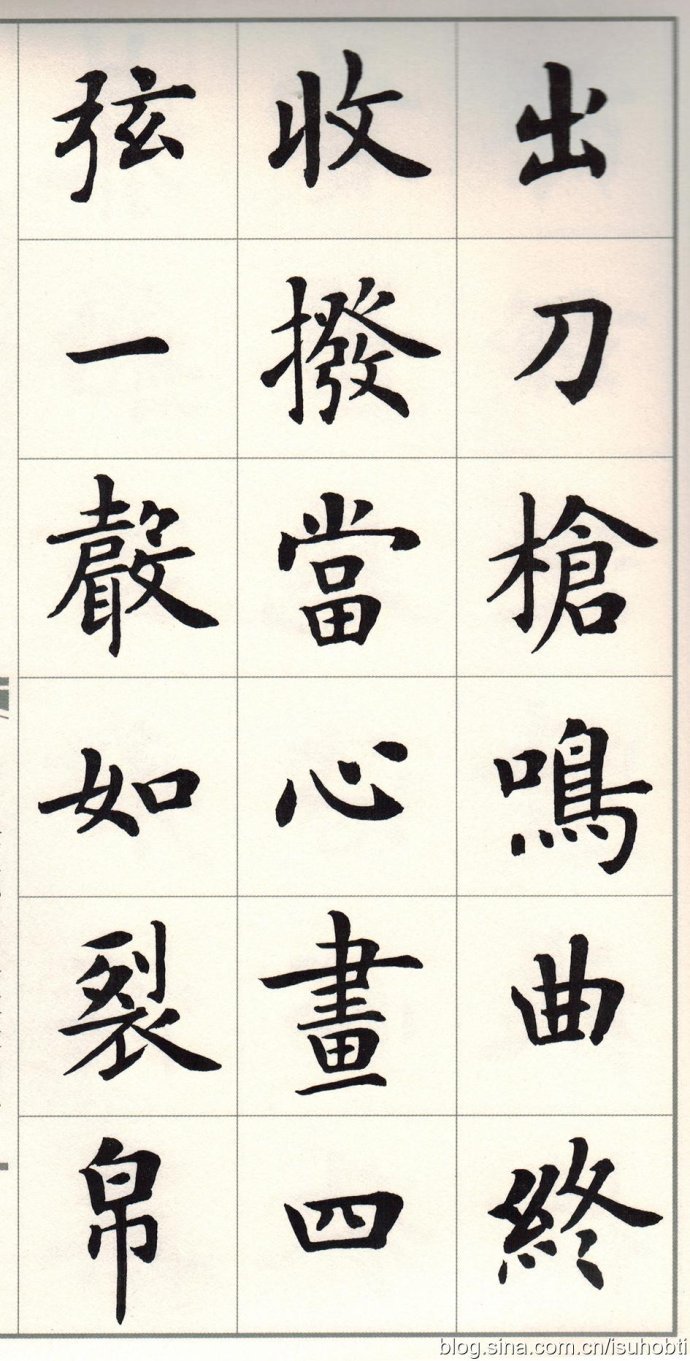 出刀槍鳴曲終
收撥當心畫四
弦一聲如裂帛
blog.sina.com.cn/isuhobti